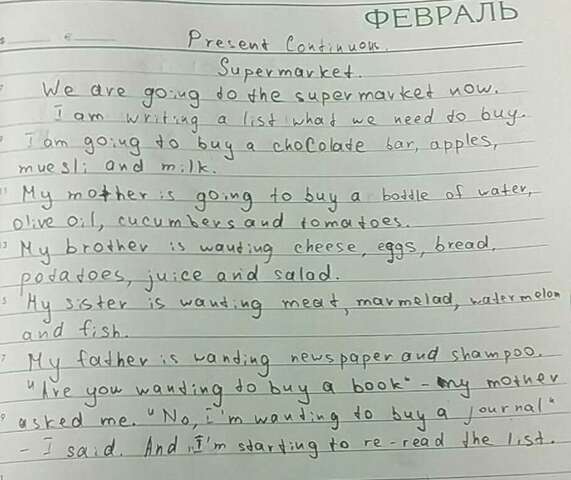 ФЕВРАЛЬ
Present Continuous.
Supermarket.
We are going to the supermarket now.
I am writing a list what we need to buy.
I am going to buy a chocolate bar, apples,
muesli and milk.
11 My mother is going to buy a bottle of water,
olive oil, cucumbers and tomatoes.
13 My brother is wanting cheese, eggs, bread,
potatoes, juice and salad.
My sister is wanting meat, marmelad, watermelon
and fish.
My father is wanting newspaper and shampoo.
"Are you wanting to buy a book" - my mother
asked me. "No, I'm wanting to buy a journal"
- I said. And, I'm starting to re-read the list.